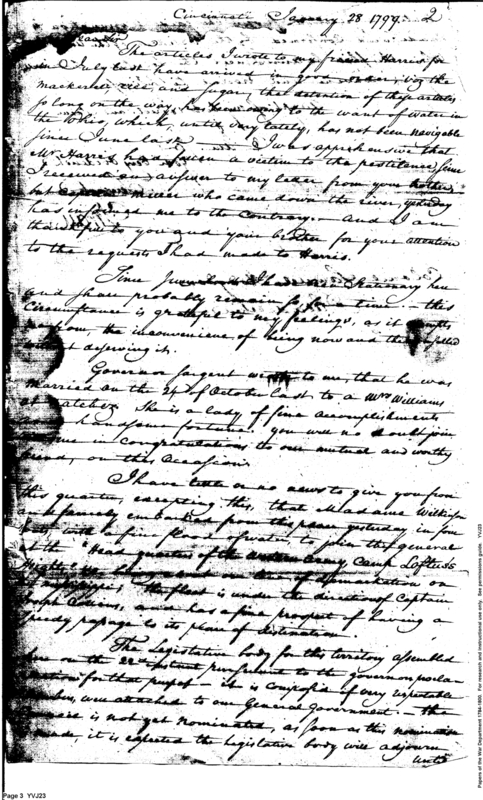 Cincinnati January 28 1799. 2
The articles I wrote to my friend Harris for
in July last have arrived in good order, viz the
mackerel, rice, and sugar, the detention of these articles
so long on the way, has been owing to the want of water in
the Ohio, which, until very lately, has not been navigable
since June last — I was apprehensive that
Mr Harris had fallen a victim to the pestilence, since
I received no answer to my letter from your brother,
but Captain Miller who came down the river, yesterday
has informed me to the contrary. — and I am
thankful to you and your brother for your attention
to the requests I had made to Harris.
Since I have been Stationary here
and shall probably remain so for a time — this
Circumstance is grateful to my feelings, as it
me from, the inconvenience of being now and then
without deserving it.
Governor Sargent wrote to me, that he was
married on the 24 of October last, to a Mrs Williams
at Natchez. She is a lady of fine accomplishments
handsome fortune; you will no doubt join
me in congratulations to our mutual and worthy
friend, on this Occasion.
I have little or no news to give you from
this quarter, excepting this, that Madame Wilkinson
and family embarked from this place yesterday in four
with a fine flood of water to join the general
at the Head quarters of the Western Army, Camp Loftus's
Heights line of demarkation on
Mississippi; The fleet is under the direction of Captain
Joseph Collins, and has a fine prospect of having a
speedy passage to its place of destination.
The Legislative body for this territory assembled
here on the 22nd instant pursuant to the governors procla-
mation for that purpose — it is composed of very reputable
attached to our General Government. — the
is not yet nominated, as soon as this nomination
is made, it is expected the legislative body will adjourn
until
Page 3 YVJ23
Papers of the War Department 1784-1800. For research and instructional use only. See permissions guide. YVJ23